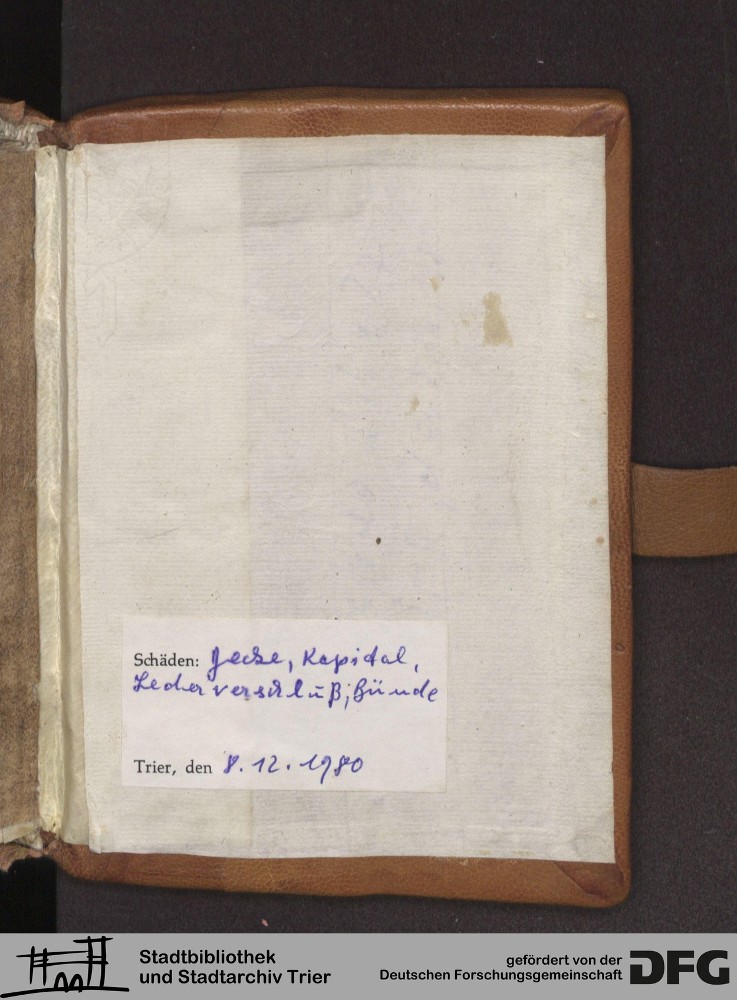 Schäden: Decke, Kapital,
Lederverschluß, Bünde
Trier, den 8. 12. 1980
Stadtbibliothek
und Stadtarchiv Trier
gefördert von der
Deutschen Forschungsgemeinschaft
DFG